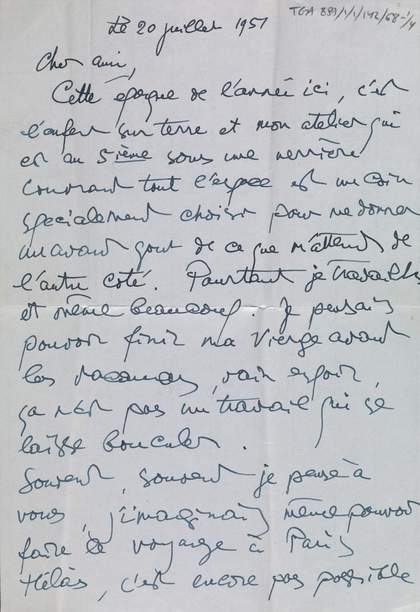 Le 20 juillet 1951
TGA 893/1/1/142/68-1/4
Cher ami,
Cette époque de l'année ici, c'est
l'enfer sur terre et mon atelier qui
est au 5ième sous une verrière
couvrant tout l'espace est un coin
specialement choisi pour me donner
un avant gout de ce que m'attend de
l'autre coté. Pourtant je travaille
et même beaucoup. Je pensais
pouvoir finir ma Vierge avant
les vacances, vain espoir,
ça n'est pas un travail qui se
laisse bousculer.
Souvent, souvent je pense à
vous, j'imaginais même pouvoir
faire le voyage à Paris
Hélas, c'est encore pas possible